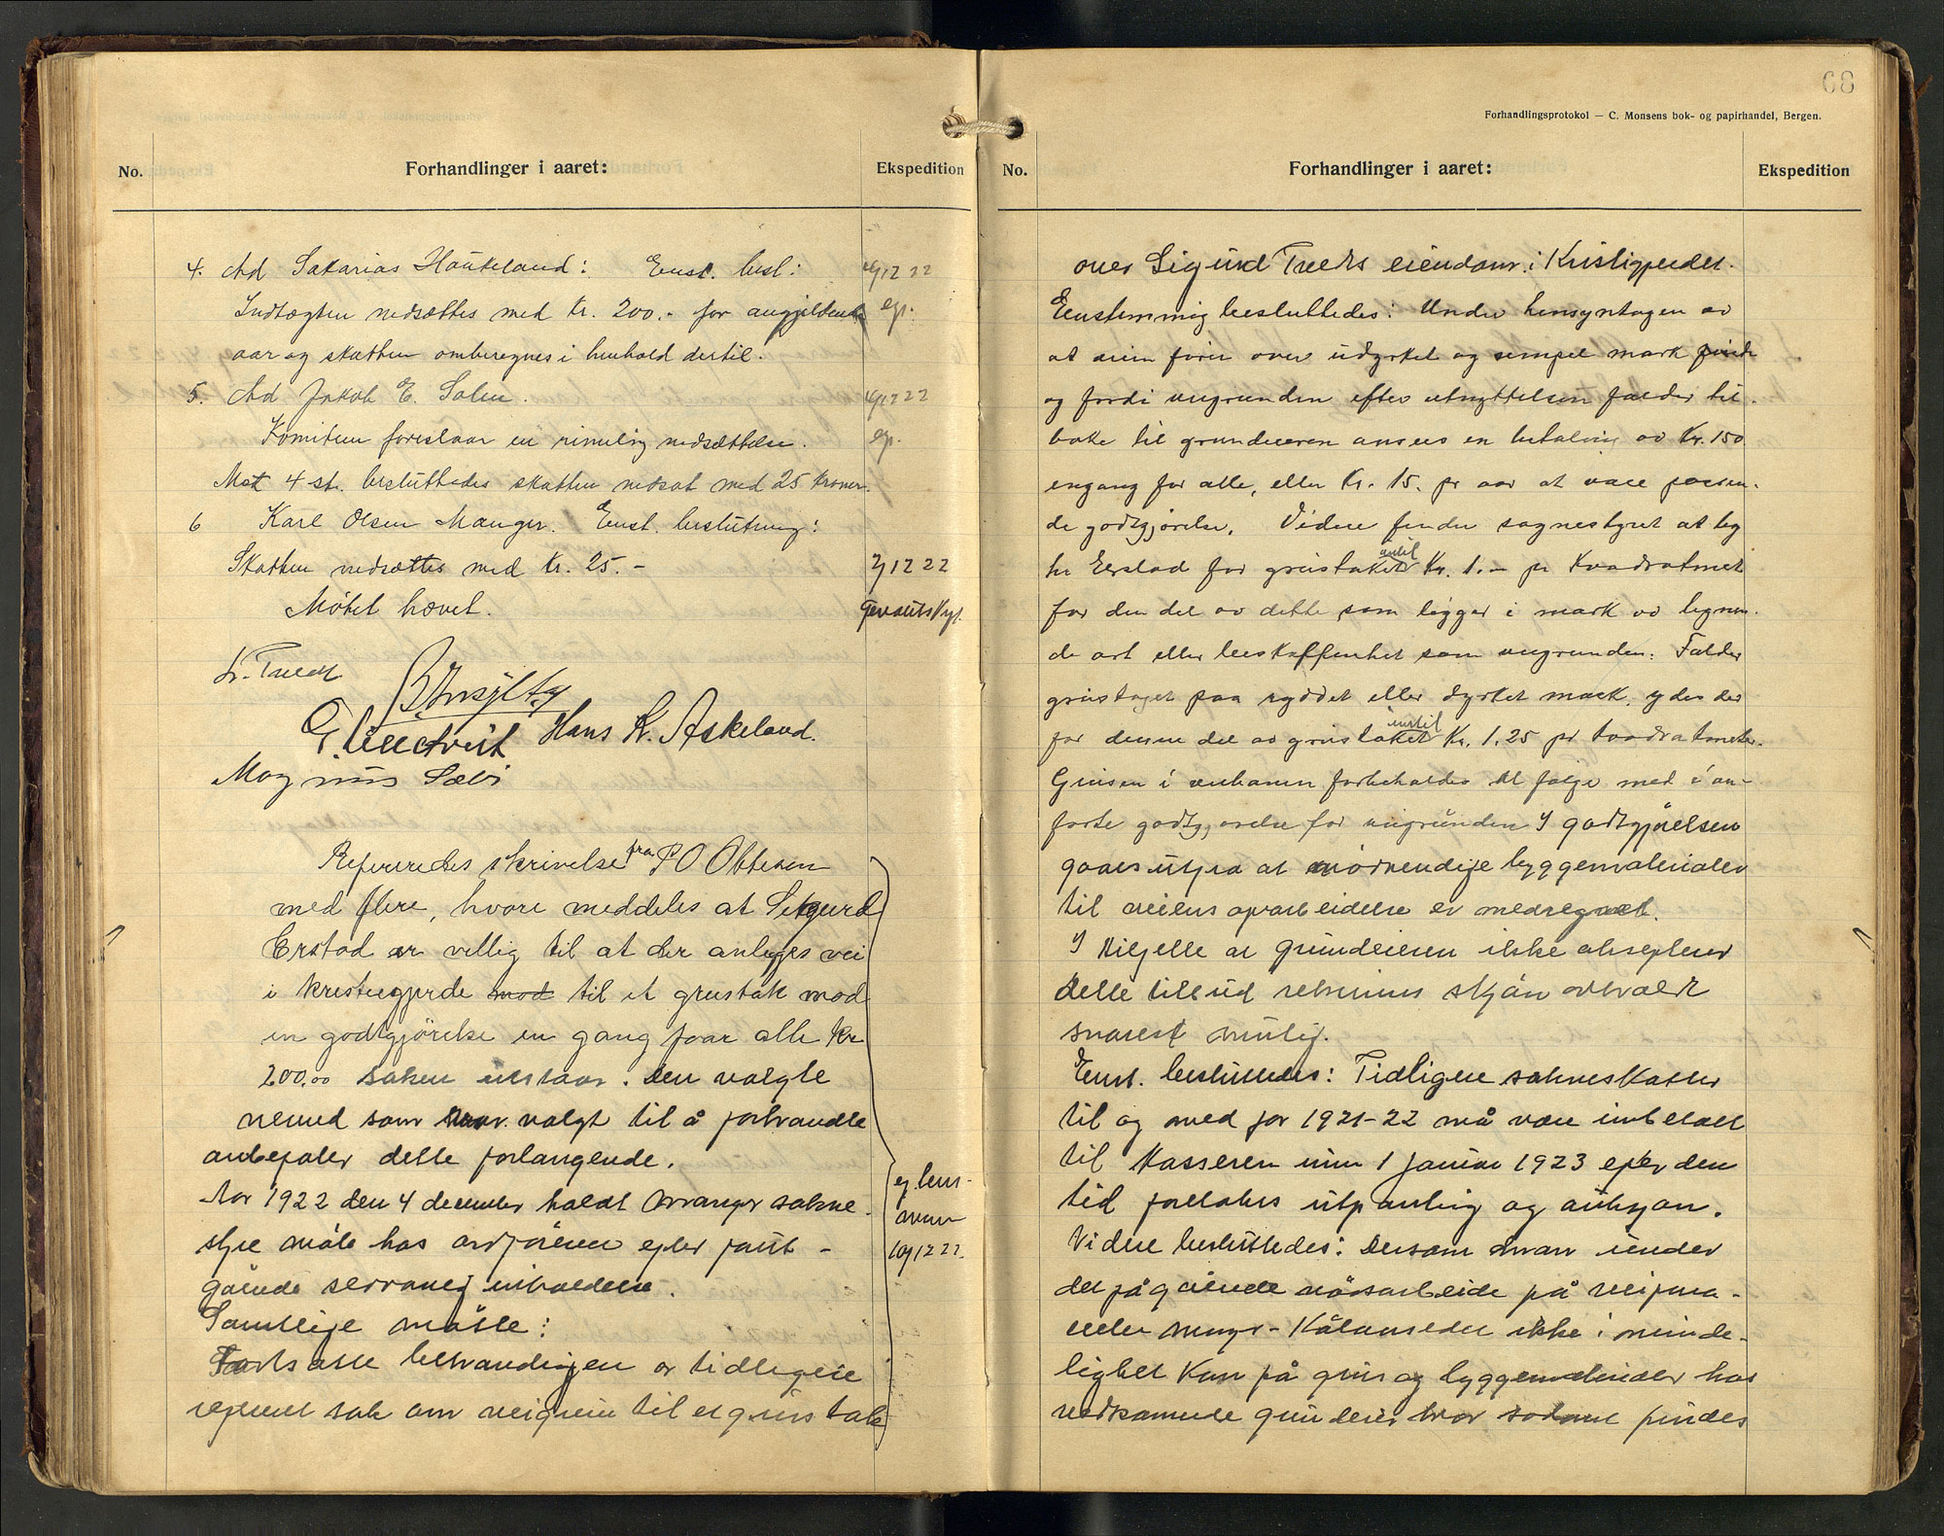 No.
Forhandlinger i aaret:
Ekspedition
4. Ad Sakarias Haukeland: Enst. besl: 4/12 22
Indtægten nedsættes med Kr. 200.- for angjeldende ep.
aar og skatten omberegnes i henhold dertil.
5. Ad Jakob E. Solem. 4/12 22
Komiteen foreslaar en rimelig nedsættelse. ep.
Mot 4 st. besluttedes skatten nedsat med 25 kroner.
6 Karl Olsen Manger. Enst. beslutning:
Skatten nedsættes med Kr. 25.- 7/12 22
Møtet hævet.
K. Tvedt
Hans K. Askeland.
Magnus Sæbø
Refereredes skrivelse fra P O Ottesen
med flere, hvore meddeles at Sigurd
Erstad er villig til at der anlegges vei
i kristiegjerde mod til et grustak mod
en godtgjørelse en gang foar alle kr
200.00 saken utstaar. Den valgte
nemnd som var valgt til å forhandle
anbefaler dette forlangende.
Aar 1922 den 4 december holdt Manger sokne-
styre møte hos ordføreren efter forut-
gående
Samtlige møtte:
Fortsatte behandlingen av tidligere
referert sak om veigrunn til et grustak
10/12 22.
68
Forhandlingsprotokol — C. Monsens bok- og papirhandel, Bergen.
No.
Forhandlinger i aaret:
Ekspedition
over Sigurd Tveits eiendom i Kristigjerdet.
Eenstemmig besluttedes: Under hensyntagen av
at veien fører over udyrket og simpel mark
og fordi veigrunden efter utnyttelsen falder til-
bake til grundeieren ansees en betaling av Kr. 150
engang for alle, eller Kr. 15. pr aar at være passen-
de godtgjørelse. Videre finder sognestyret at by
hr Erstad for grustaket indtil Kr. 1.- pr Kvadratmet
for den del av dette som ligger i mark av lignen-
de art eller beskaffenhet som veigrunden. Falder
grustaget paa ryddet eller dyrket mark, ydes der
for denne del av grustaket inntil Kr. 1.25 pr kvadratmeter.
Grusen i veibanen forbeholdes at følge med i an-
førte godtgjørelse for veigrunden I godtgjørelsen
gaaes ut fra at nødvendige byggematerialer
til veiens oparbeidelse er medregnet.
I tilfelle at grundeieren ikke aksepterer
dette tilbud skjøn avholdt
snarest mulig.
Enst. besluttedes: Tidligere sokneskatter
til og med for 1921-22 må være innbetalt
til Kasseren innen 1 januar 1923 efter den
tid foretakes utpanting og auksjon.
Videre besluttedes: Dersom man under
det pågående nødsarbeide på veipar-
cellen ikke i minde-
lighet kan få grus og byggematerialer hos
vedkommende grundeier hvor sådant findes